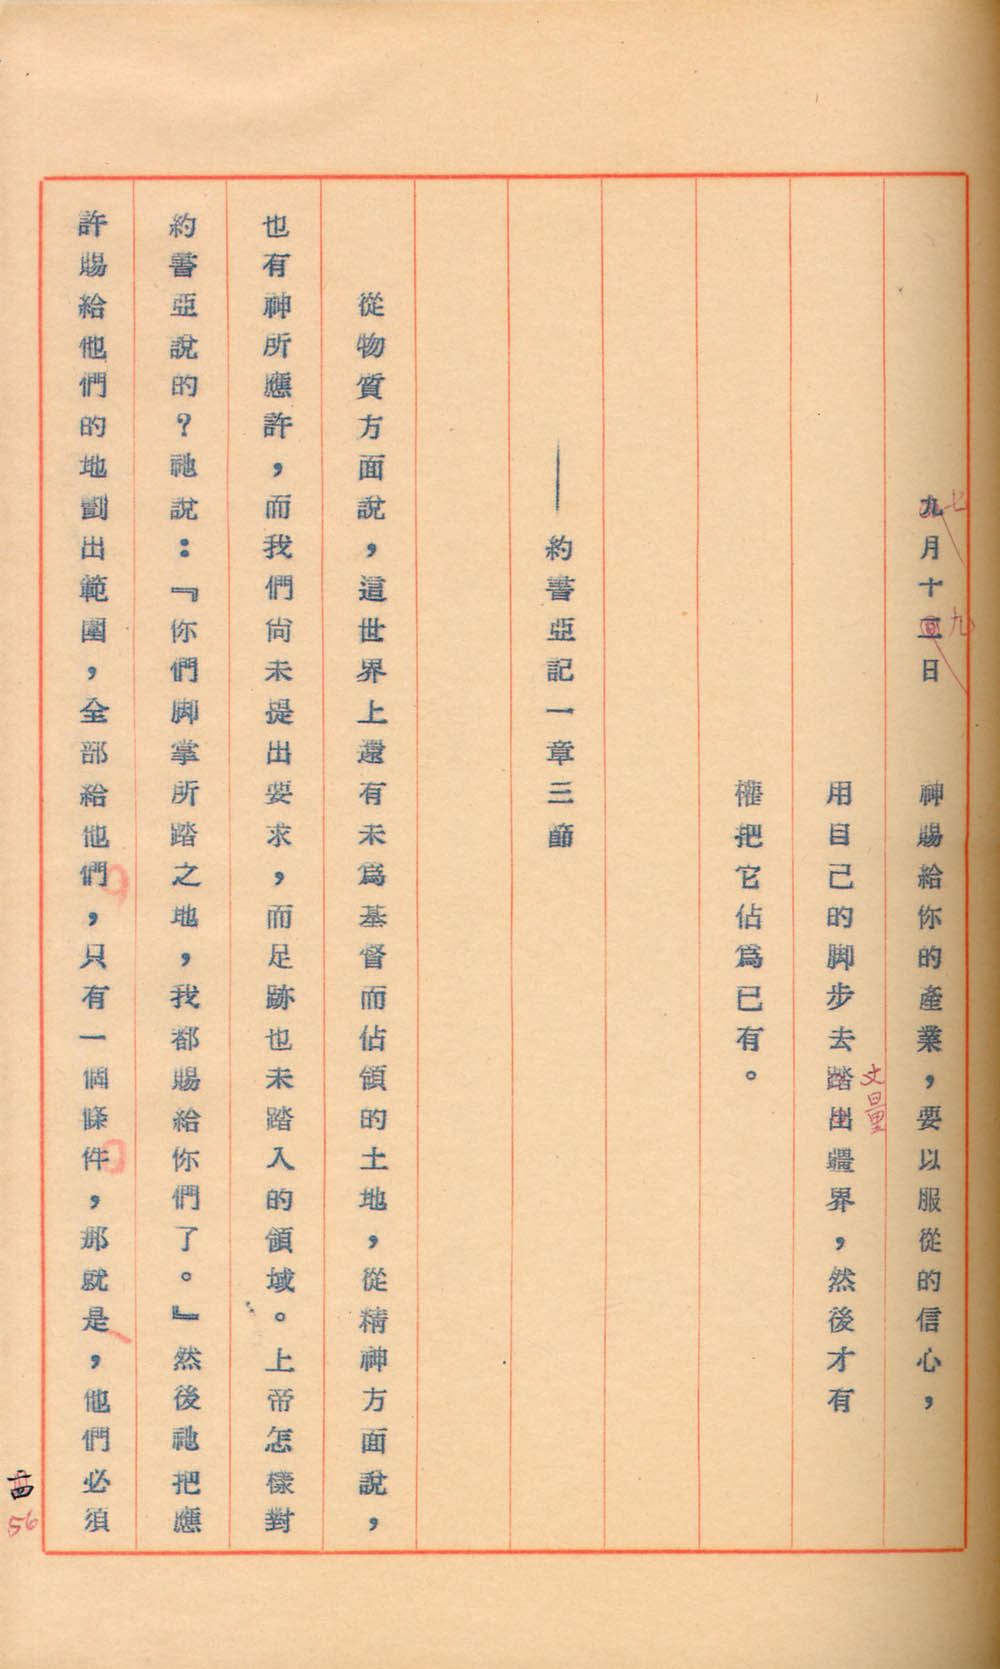 九月十二日　神賜給你的產業，要以服從的信心，
七
九
用自己的脚步去踏出疆界，然後才有
丈量
權把它佔爲已有。
——約書亞記一章三節
從物質方面說，這世界上還有未爲基督而佔領的土地，從精神方面說，
也有神所應許，而我們尙未提出要求，而足跡也未踏入的領域。上帝怎樣對
約書亞說的？祂說：『你們脚掌所踏之地，我都賜給你們了。』然後祂把應
許賜給他們的地劃出範圍，全部給他們，只有一個條件，那就是，他們必須
56